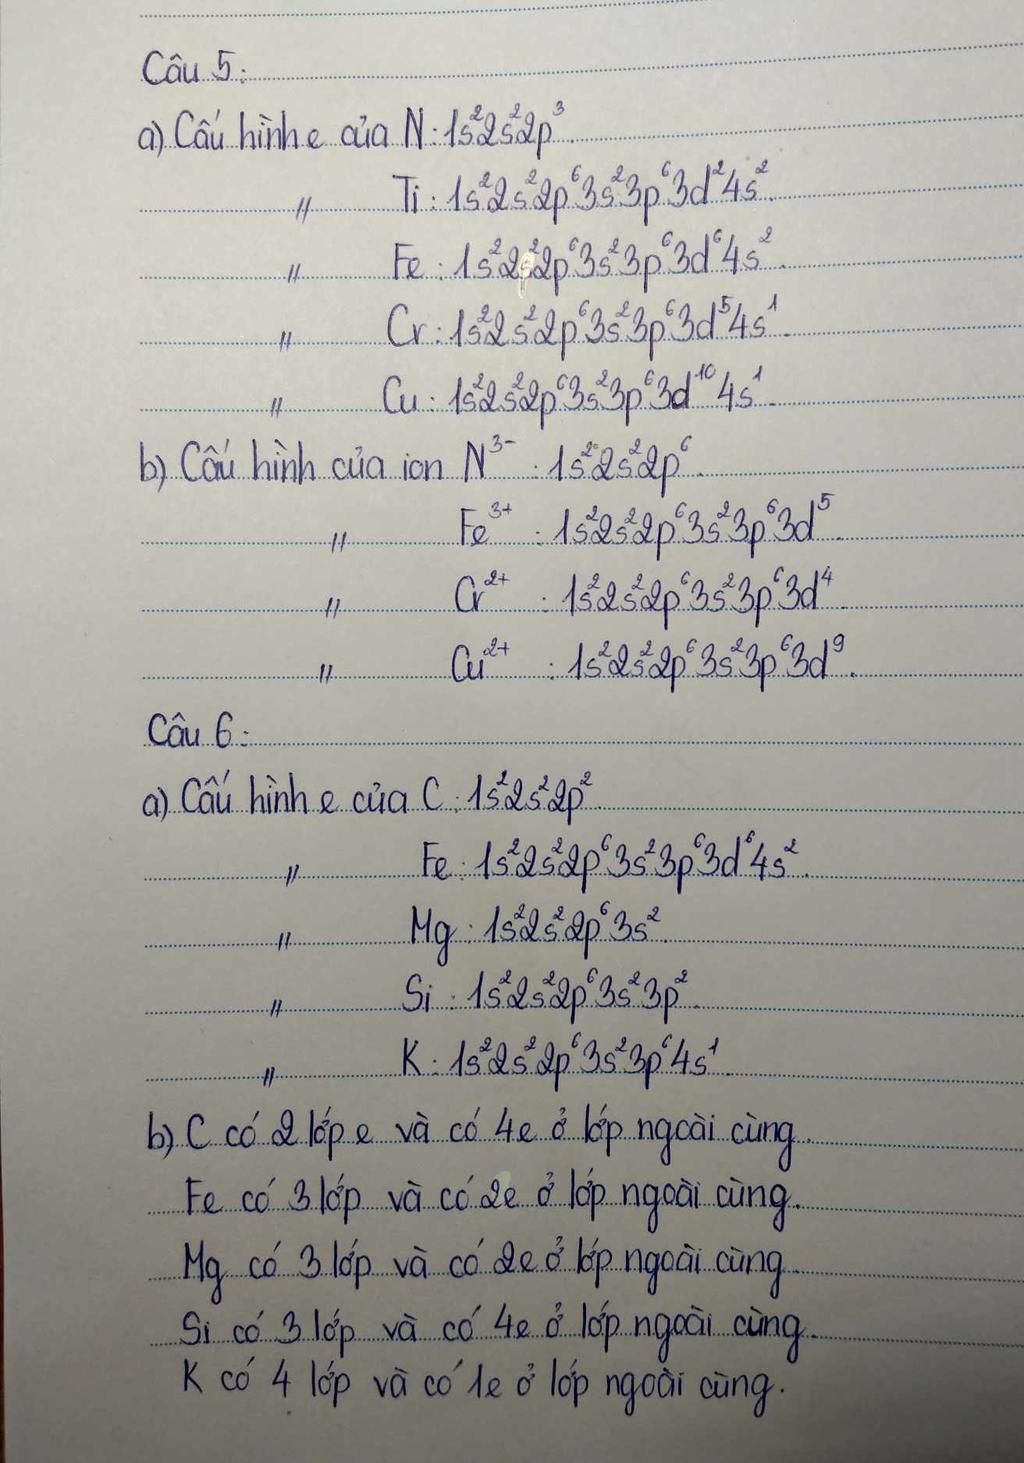 Câu 5:
a) Cấu hình e của N: 1s²2s²2p³.
〃 Ti: 1s²2s²2p⁶3s²3p⁶3d²4s².
〃 Fe: 1s²2s²2p⁶3s²3p⁶3d⁶4s².
〃 Cr: 1s²2s²2p⁶3s²3p⁶3d⁵4s¹.
〃 Cu: 1s²2s²2p⁶3s²3p⁶3d¹⁰4s¹.
b) Cấu hình của ion N³⁻: 1s²2s²2p⁶.
〃 Fe³⁺: 1s²2s²2p⁶3s²3p⁶3d⁵.
〃 Cr²⁺: 1s²2s²2p⁶3s²3p⁶3d⁴.
〃 Cu²⁺: 1s²2s²2p⁶3s²3p⁶3d⁹.
Câu 6:
a) Cấu hình e của C: 1s²2s²2p².
〃 Fe: 1s²2s²2p⁶3s²3p⁶3d⁶4s².
〃 Mg: 1s²2s²2p⁶3s².
〃 Si: 1s²2s²2p⁶3s²3p².
〃 K: 1s²2s²2p⁶3s²3p⁶4s¹.
b) C có 2 lớp e và có 4e ở lớp ngoài cùng.
Fe có 3 lớp và có 2e ở lớp ngoài cùng.
Mg có 3 lớp và có 2e ở lớp ngoài cùng.
Si có 3 lớp và có 4e ở lớp ngoài cùng.
K có 4 lớp và có 1e ở lớp ngoài cùng.